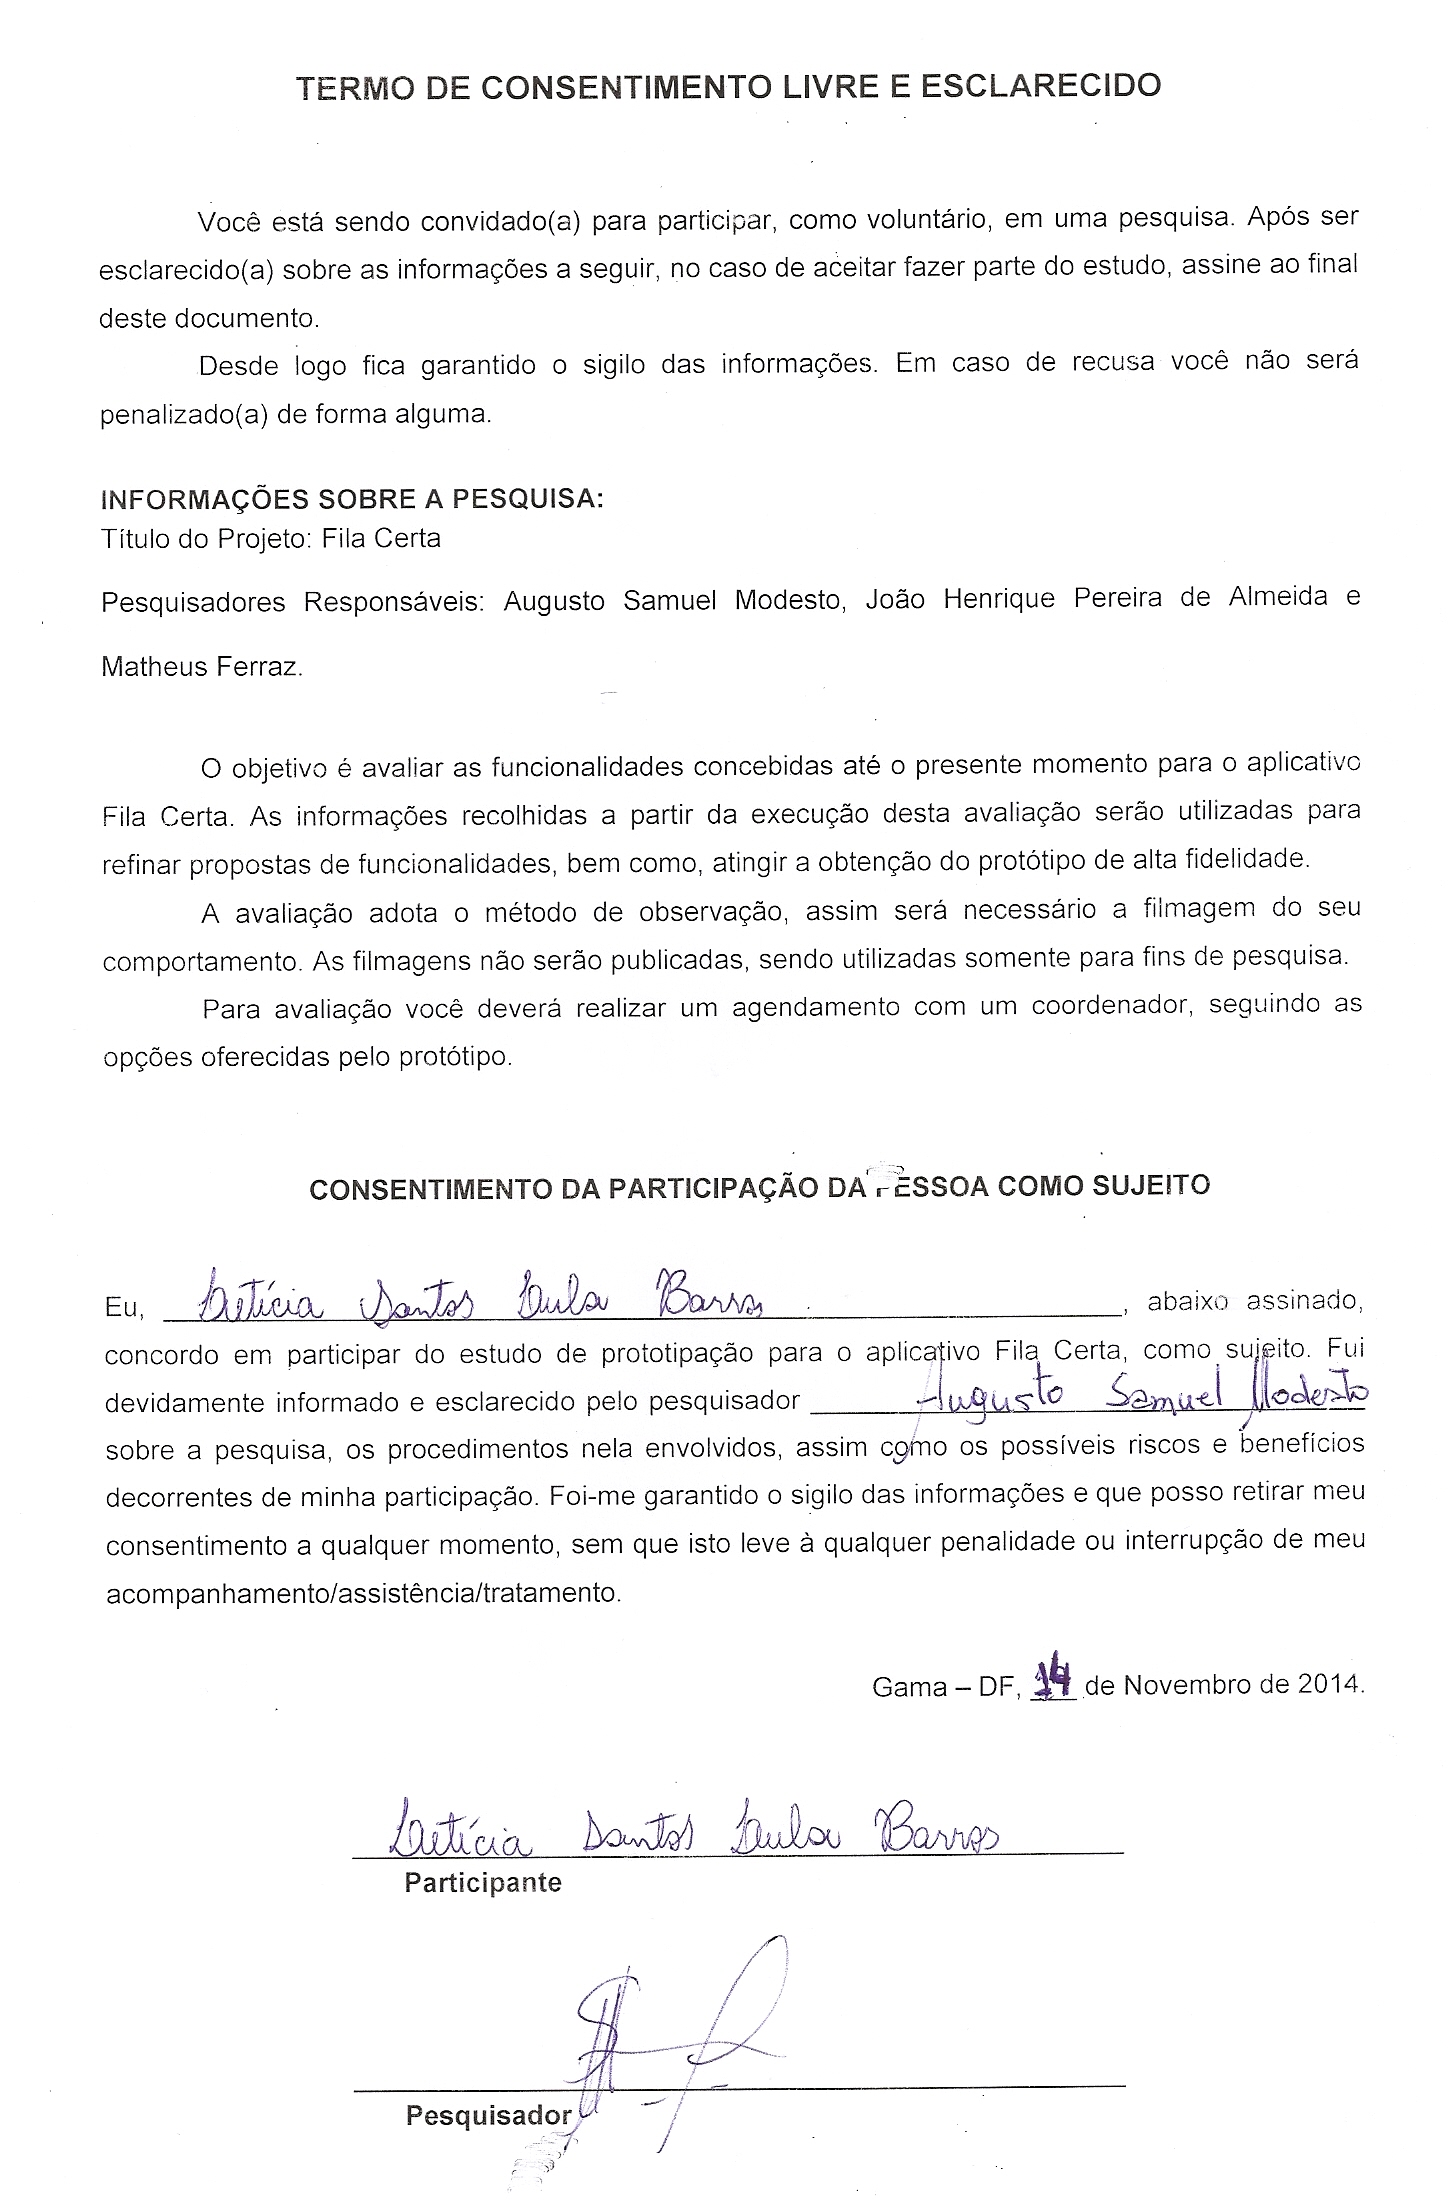 TERMO DE CONSENTIMENTO LIVRE E ESCLARECIDO
Você está sendo convidado(a) para participar, como voluntário, em uma pesquisa. Após ser
esclarecido(a) sobre as informações a seguir, no caso de aceitar fazer parte do estudo, assine ao final
deste documento.
Desde logo fica garantido o sigilo das informações. Em caso de recusa você não será
penalizado(a) de forma alguma.
INFORMAÇÕES SOBRE A PESQUISA:
Título do Projeto: Fila Certa
Pesquisadores Responsáveis: Augusto Samuel Modesto, João Henrique Pereira de Almeida e
Matheus Ferraz.
O objetivo é avaliar as funcionalidades concebidas até o presente momento para o aplicativo
Fila Certa. As informações recolhidas a partir da execução desta avaliação serão utilizadas para
refinar propostas de funcionalidades, bem como, atingir a obtenção do protótipo de alta fidelidade.
A avaliação adota o método de observação, assim será necessário a filmagem do seu
comportamento. As filmagens não serão publicadas, sendo utilizadas somente para fins de pesquisa.
Para avaliação você deverá realizar um agendamento com um coordenador, seguindo as
opções oferecidas pelo protótipo.
CONSENTIMENTO DA PARTICIPAÇÃO DA PESSOA COMO SUJEITO
Eu, Letícia Santos Lula Barros, abaixo assinado,
concordo em participar do estudo de prototipação para o aplicativo Fila Certa, como sujeito. Fui
devidamente informado e esclarecido pelo pesquisador Augusto Samuel Modesto
sobre a pesquisa, os procedimentos nela envolvidos, assim como os possíveis riscos e benefícios
decorrentes de minha participação. Foi-me garantido o sigilo das informações e que posso retirar meu
consentimento a qualquer momento, sem que isto leve à qualquer penalidade ou interrupção de meu
acompanhamento/assistência/tratamento.
Gama – DF, 14 de Novembro de 2014.
Letícia Santos Lula Barros
Participante
Pesquisador